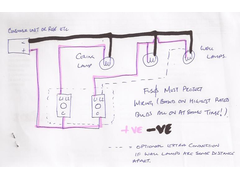 CEILING
LAMP
WALL
LAMPS
FUSE MOST PROTECT
WIRING (BASED ON HIGHEST RATED
BULBS ALL ON AT SAME TIME!)
+VE -VE
= OPTIONAL EXTRA CONNECTION
IF WALL LAMPS ARE SOME DISTANCE
APART.